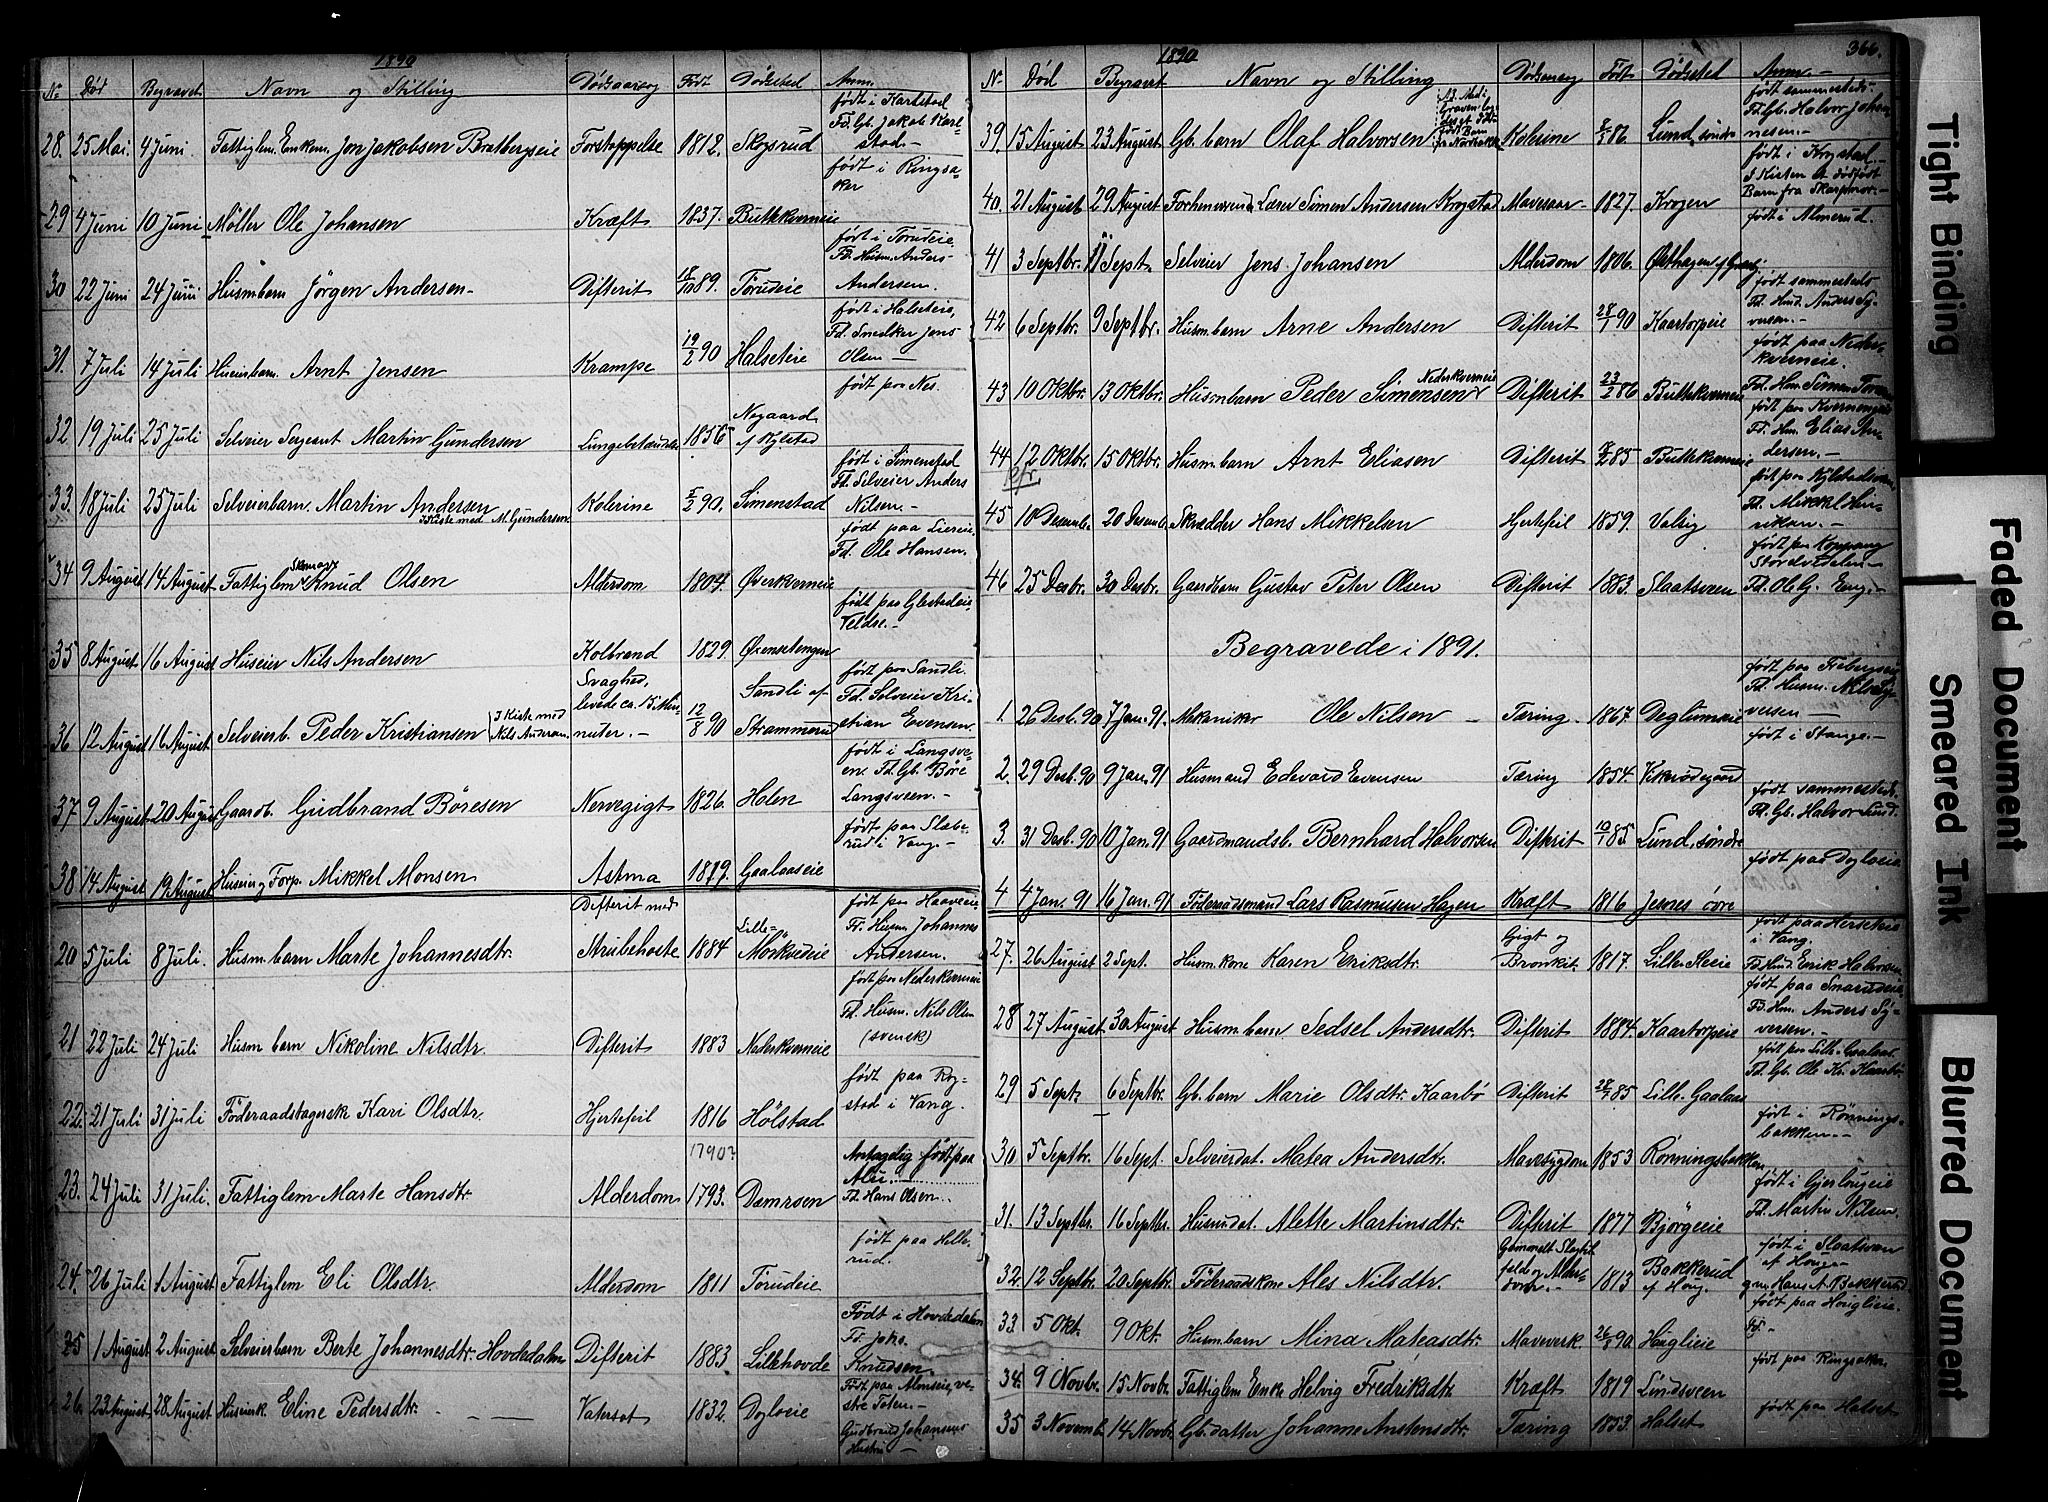 1890
No Død Begravet Navn og Stilling Dødsaarsag Født Dødsted Anm.
28. 25 Mai. 4 Juni Fattiglem Enkem. Jon Jakobsen Bratbergseie Forstoppelse 1812. Skogsrud født i Karlstad Fd. Gb. Jakob Karlstad.-
29 4 Juni 10 Juni Møller Ole Johansen Kræft 1837. Buttekverneie født i Ringsaker
30 22 Juni 24 Juni Husmbarn Jørgen Andersen Difterit 18/10 89. Torudeie født i Torudeie. Fd. Husm. Anders Andersen.
31. 7 Juli 14 Juli Husmbarn. Arnt Jensen Krampe 19/2 90 Halseteie født i Halseteie, Fd. Snedker Jens Olsen
32 19 Juli 25 Juli Selveier Sergeant Martin Gundersen Lungebetændelse 1856 Nogaard af Kylstad født paa Nes.
33. 18 Juli 25 Juli Selveierbarn. Martin Andersen I Kiste med M. Gundersen Kolerine 5/2 90. Simenstad født i Simenstad Fd. Selveier Anders Nilsen.-
34 9 August 14 August Fattiglem Skomager Knud Olsen Alderdom 1804. Øverkverneie født paa Liereie, Fd. Ole Hansen.
35 8 August 16 August Huseier Nils Andersen Kolbrand 1829. Øxenstengen født paa Gbestadeie, Veldre.-
36 12 August 16 August Selveierb. Peder Kristiansen I Kiste med Nils Andersen Svaghed, levede ca. 15 Minuter.- 12/8 90 Sandli af Strammerud født paa Sandli Fd. Selveier Kristian Evensen.
37 9 August 20 August Gaardb. Gudbrand Børesen Nervegigt 1826. Holen født i Langsveen. Fd. Gb. Børe Langsveen.-
38 14 August 19 August Huseier og Forp. Mikkel Monsen Astma 1819. Gaalaaseie født paa Slaberud i Vang.-
20 5 Juli 8 Juli. Husm. barn Marte Johannesdtr. Difterit med Strubehoste 1884 Lille-Mørkvedeie født paa Haaveeie Fd. Husm Johannes Andersen.
21 22 Juli 24 Juli Husm barn Nikoline Nilsdtr. Difterit 1883 Nederkverneie født paa Nederkverneie Fd. Husm. Nils Olsen (svensk)
22. 21 Juli 31 Juli Føderaadstagersk Kari Olsdtr. Hjertefeil 1816 Hølstad født paa Rogstad i Vang.
23. 24 Juli 31 Juli. Fattiglem Marte Hansdtr. Alderdom 1790? 1793. Damrsen Antagelig født paa Alu. Fd. Hans Olsen.
24. 26 Juli 1 August Fattiglem Eli Olsdtr. Alderdom 1811 Torudeie født paa Hellerud.
25 1 August 2 August Selveierbarn Berte Johannesdtr. Hovdedalen Difterit 1883 Lillehovde Født i Hovdedalen Fd. Johs. Knudsen
26. 23 August 28 August Huseiersk. Eline Pedersdtr. Vatersot 1832. Dogloeie Født paa Alonseie, vestre Toten.- Gudbrand Johansens Hustru
1890 366.
No Død Begravet Navn og Stilling Dødsaarsag Født Dødsted Anm.
39. 15 August 23 August Gb. barn Olaf Halvorsen Kolerine 8/1 86. Lund, søndre født sammesteds. Fd. Gb. Halvor Johannesen.-
40. 21 August 29 August Forhenværende Lærer Simen Andersen Krogstad Mavesaar 1827. Krogen født i Krogstad.- I Kisten et dødfødt Barn fra Skarpnor.-
41 3 Septbr. 11 Sept. Selveier Jens Johansen Alderdom 1806. Østhagen født i Almerud.
42 6 Septbr. 9 Septbr. Husm. barn Arne Andersen Difterit 28/1 90 Kaartorpeie født sammesteds Fd. Husm. Anders Syversen.-
43 10 Oktbr. 13 Oktbr. Husm barn Peder Simensen Nederkverneie Difterit 23/2 86 Buttekverneie født paa Nederkverneie. Fd. Hm. Simen
44 12 Oktbr. 15 Oktbr. Husm. barn Arnt Eliasen Difterit 85 Buttekverneie født paa Fd. Hm. Elias Andersen.
45 10 Desemb. 20 Desemb. Skrædder Hans Mikkelsen Hjertefeil 1859. Valsig født paa Kylstadsveen, Fd. Mikkel Henriksen.-
46 25 Desbr. 30 Desbr. Gaardbarn Gustav Peter Olsen Difterit 1883. Slaatsveen født paa Koppang Storelvedalen Fd. Ole G. Eng.
Begravede i 1891.
1. 26 Desb. 90 7 Jan. 91 Mekaniker Ole Nilsen Tæring. 1867. Deglumeie født paa Frebergseie Fd. Husm. Nils Syversen
2. 29 Desb. 90 9 Jan. 91 Husmand Edevard Evensen Tæring 1854. Vekkerødegaard født i Stange.-
3. 31 Desb. 90 10 Jan. 91 Gaardmandsb. Bernhard Halvorsen Difterit 10/1 85. Lund, søndre født sammesteds. Fd. Gb. Halvor Lund.
4 4 Jan. 91 16 Jan. 91 Føderaadsmand Lars Rasmusen Hagen Kræft 1816 Jesnes øvre født paa Dogloeie
27. 26 August 2 Sept. Husm. kone Karen Eriksdtr. Gigt og Bronkit. 1817. Lille Skeie født paa Herseteie i Vang. Fd. Husm. Erik Halvorsen
28 27 August 30 August Husm. barn Sedsel Andersdtr. Difterit 1884. Kaartorpeie født paa Snarudeie Fd. Hm. Anders Syversen.-
29 5 Sept. 6 Septbr. Gb. barn Marie Olsdtr. Kaarbø Difterit 85 Lille-Gaalaas født paa Lille-Gaalaas. Fd. Gb. Ole Kr. Kaarbø.
30 5 Septbr. 16 Sept. Selveierdat. Matea Andersdtr. Mavesygdom 1853 Rønningsbakken født i Rønningsbakken.-
31. 13 Septbr. 16 Septbr. Husmdat. Alette Martinsdtr. Difterit 1877 Bjørgeeie født i Gjerlougeie Fd. Martin Nilsen.
32. 12 Septbr. 20 Septbr. Føderaadskone Ales Nilsdtr. Gammelt Slagtilfelde og Alderdom.- 1813 Bakkerud af Houg. født i Slaatsveen af Houg. gm. Hans A. Bakkerud
33. 5 Okt. 9 Okt. Husm. barn Mina Mateasdtr. Maveverk 26/8 90. Houglieie født paa Houglieie.
34. 9 Novbr. 15 Novbr. Fattiglem Enke Helvig Fredriksdtr. Kræft 1819 Lundsveen født paa Ringsaker
35 3 Novemb. 14 Novbr. Gb. datter Johanne Anstensdtr. Tæring 1853. Halset født paa Halset
Tight Binding
Faded Document
Smeared Ink
Blurred Document